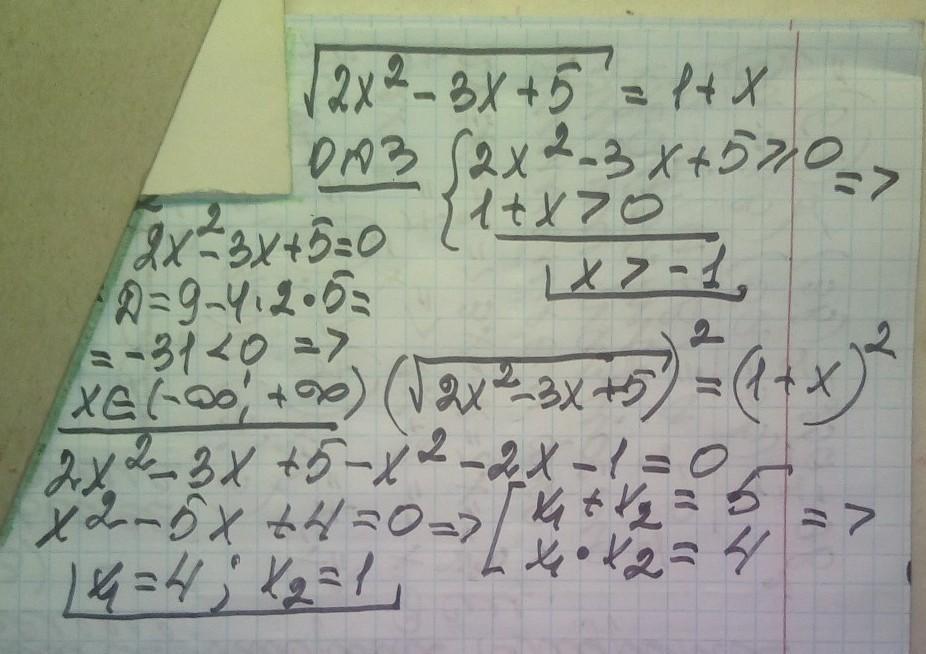 √2x² - 3x + 5 = 1 + x
ОДЗ { 2x² - 3x + 5 ≥ 0 =>
1 + x > 0
x > -1
2x² - 3x + 5 = 0
D = 9 - 4 · 2 · 5 =
= -31 < 0 =>
x ∈ (-∞; +∞)
(√2x² - 3x + 5)² = (1 + x)²
2x² - 3x + 5 - x² - 2x - 1 = 0
x² - 5x + 4 = 0 => [ x₁ + x₂ = 5
x₁ · x₂ = 4 =>
x₁ = 4; x₂ = 1